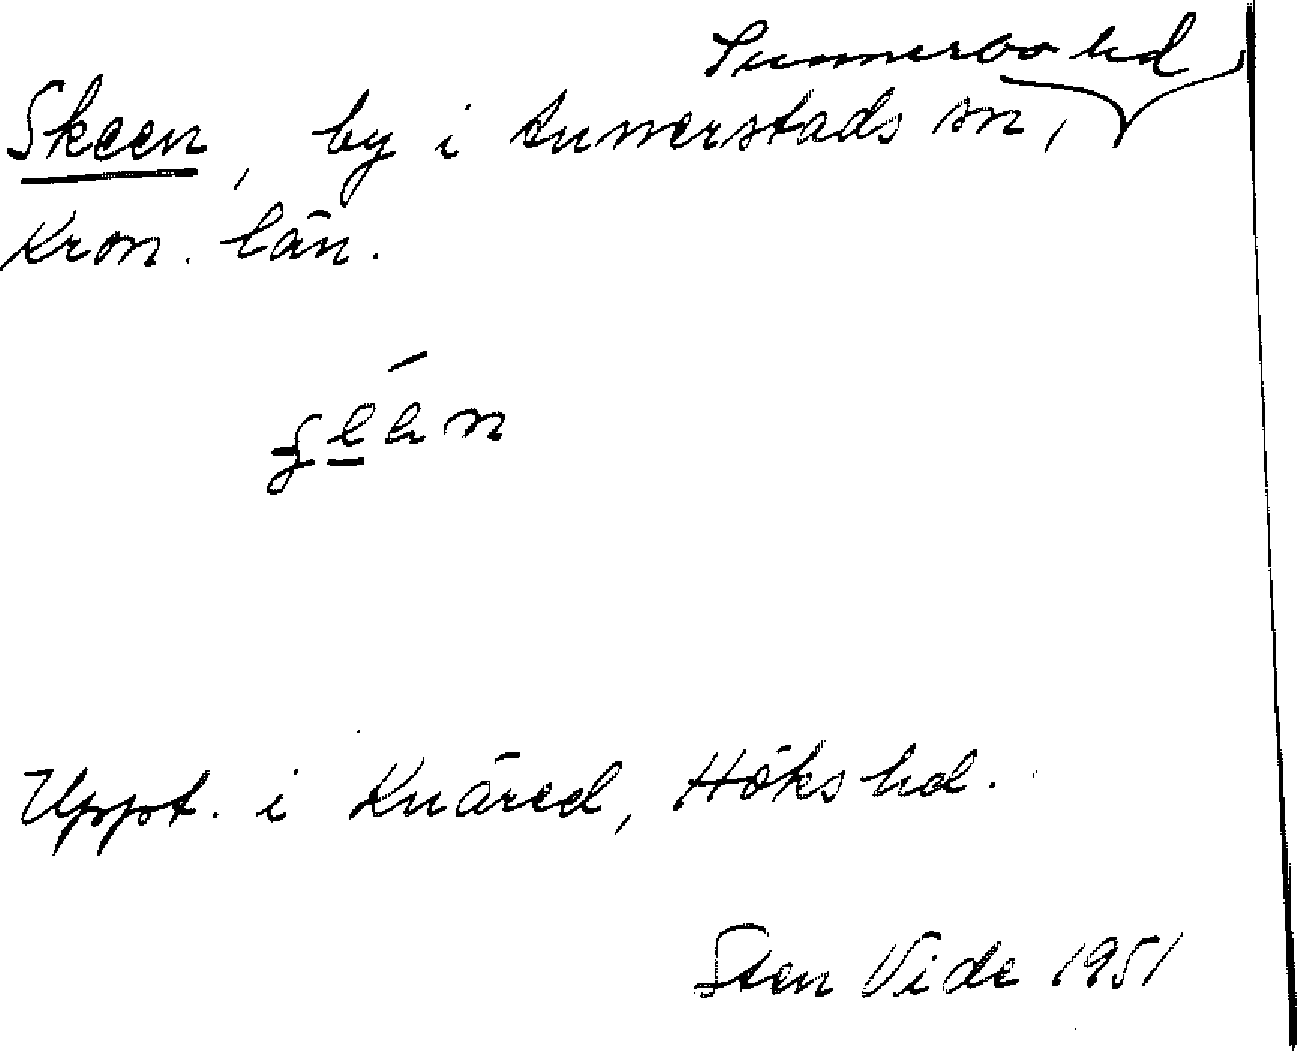 Sunnerbo hd
Skeen, by i Annerstads sn,
Kron. län.
Uppt. i Knäred, Höks hd.
Sten Vide 1951